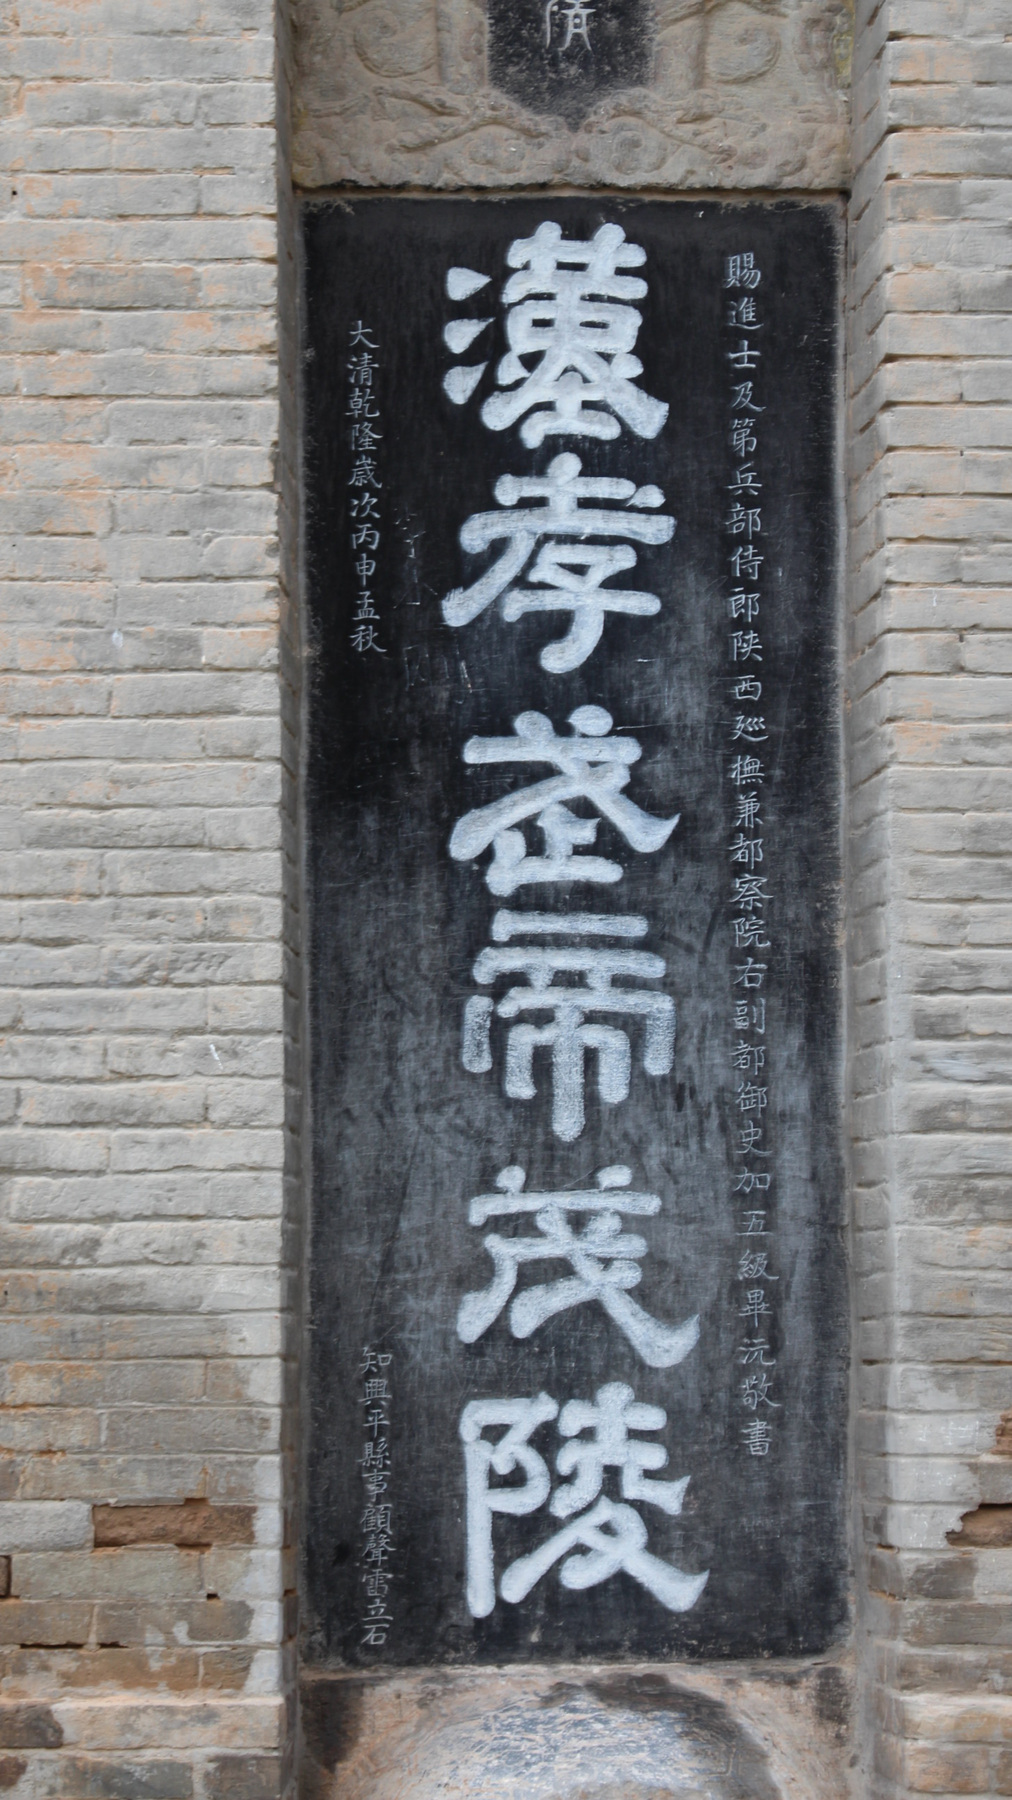 清
賜進士及第兵部侍郎陕西廵撫兼都察院右副都御史加五級畢沅敬書
漢孝武帝茂陵
大清乾隆歳次丙申孟秋
知興平縣事顧聲雷立石